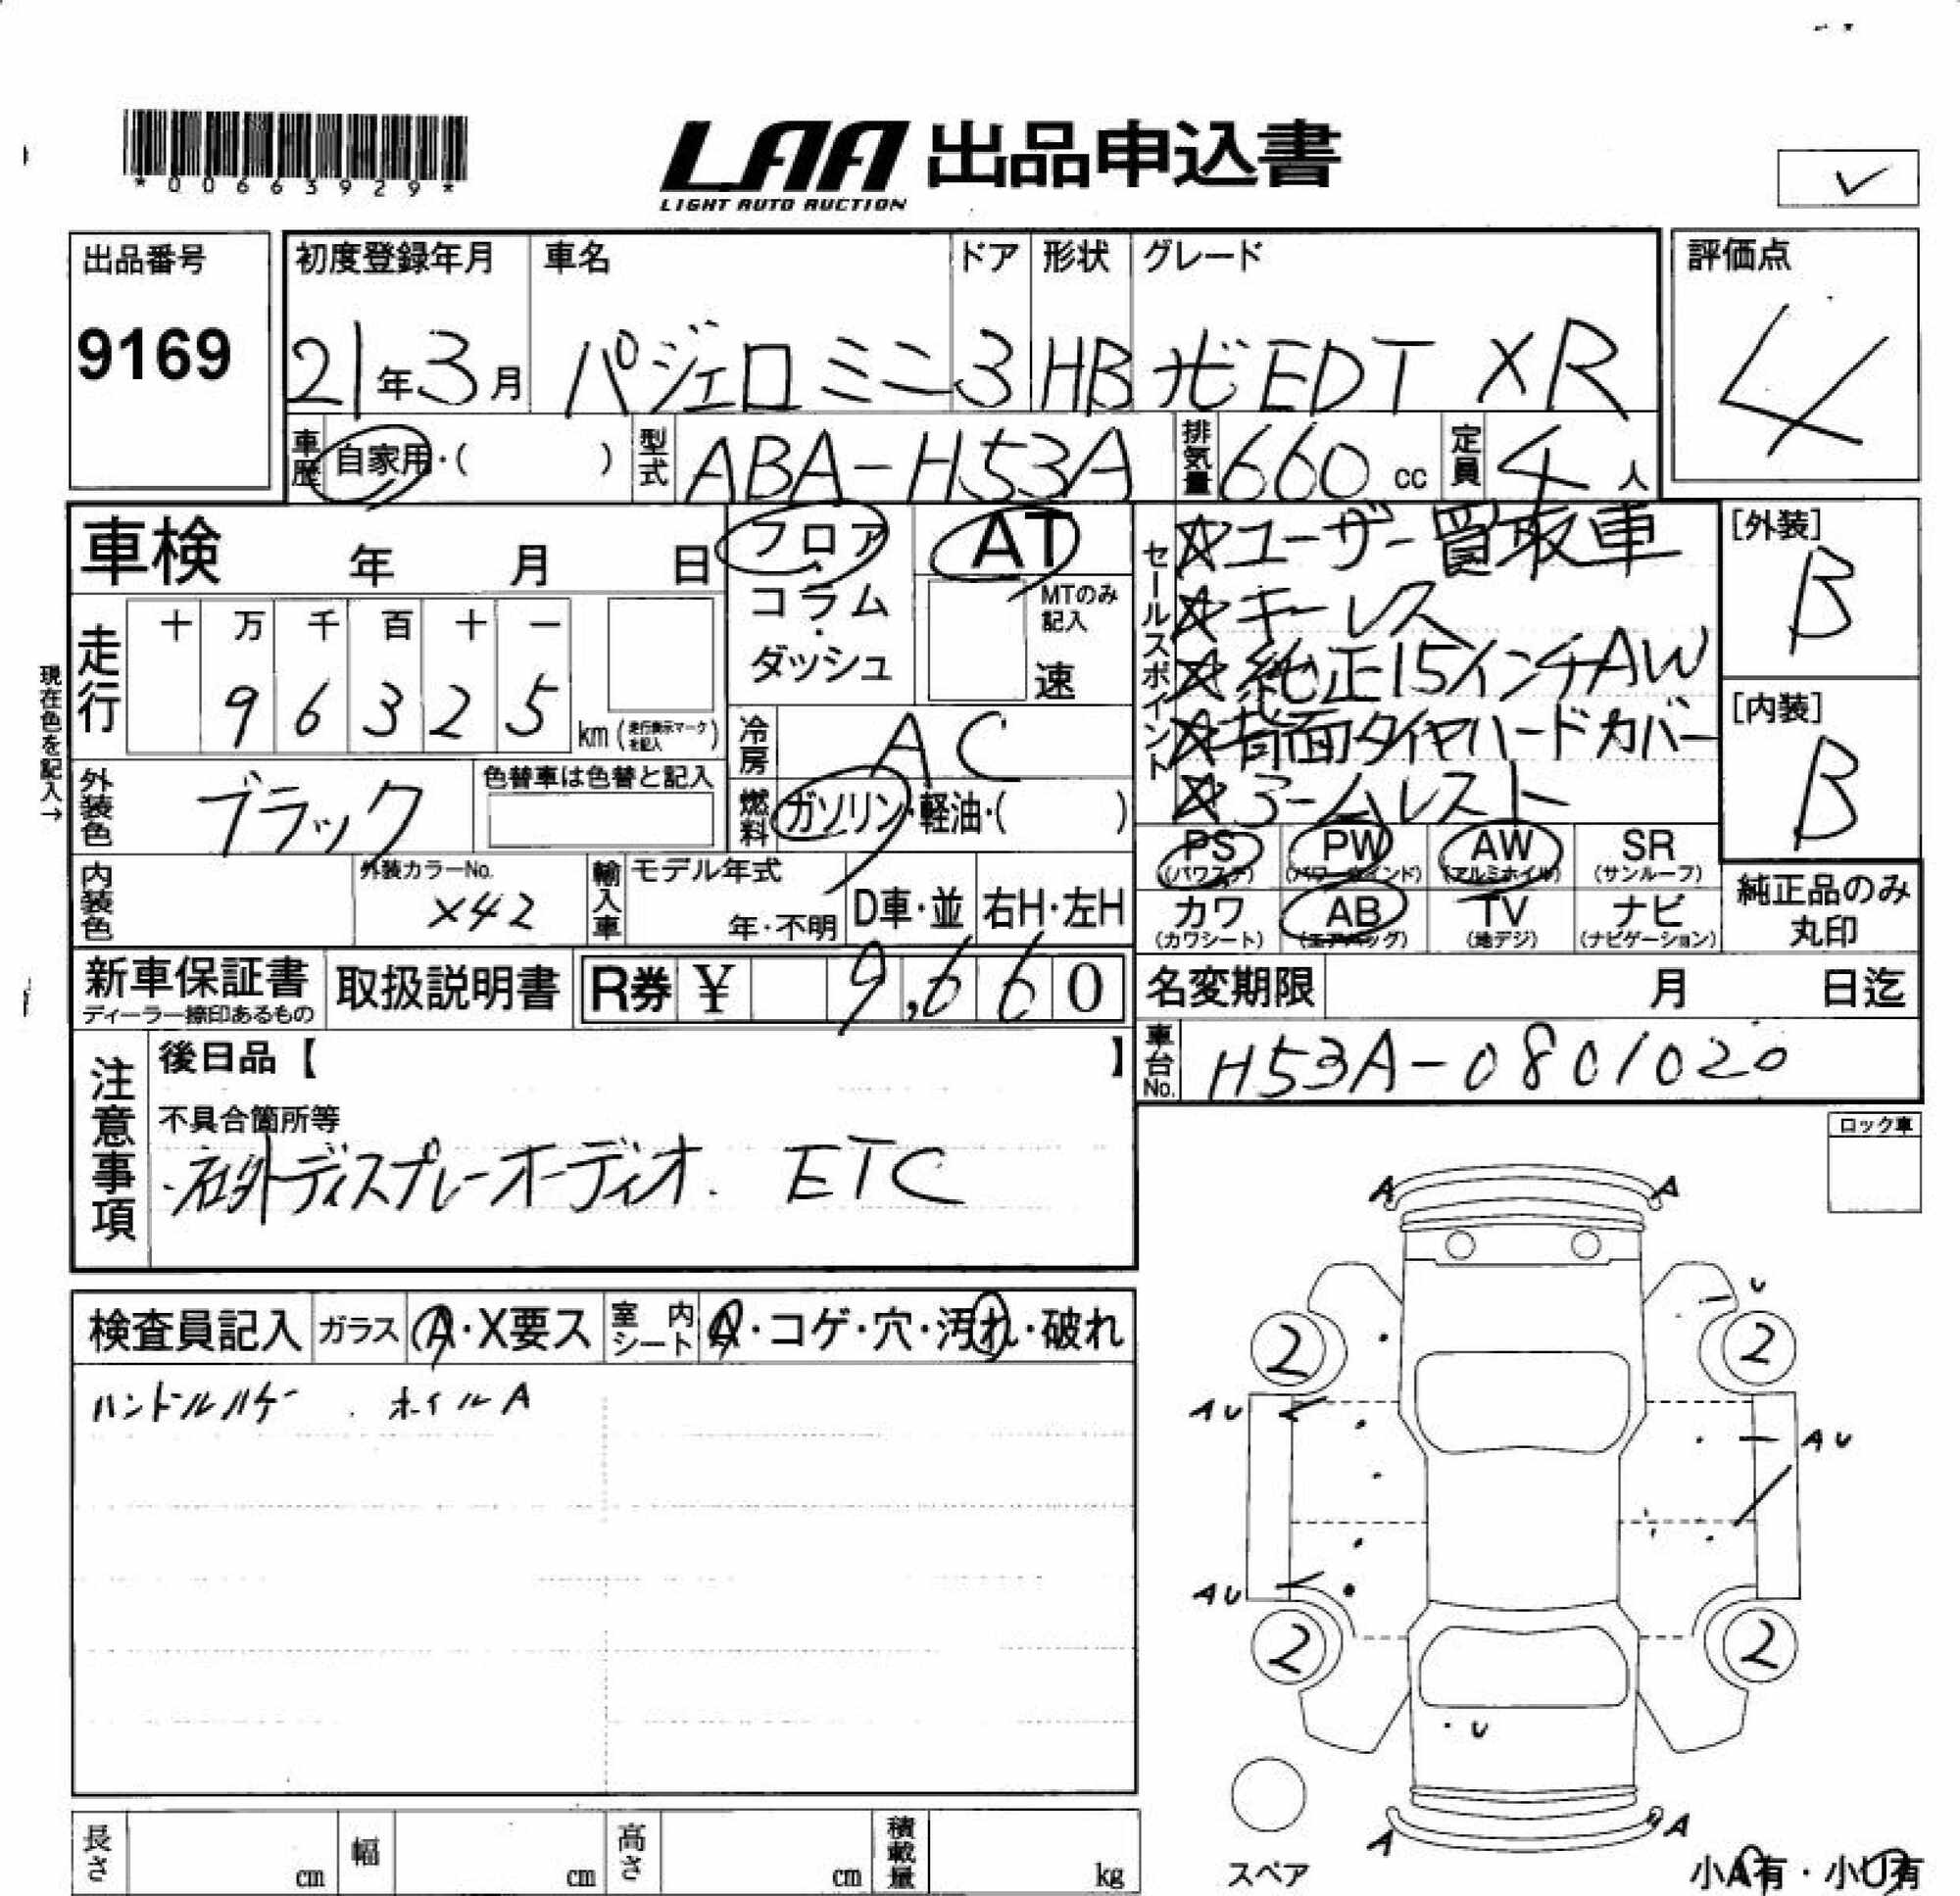 *00663929*
LAA 出品申込書
LIGHT AUTO AUCTION
✓
出品番号
9169
初度登録年月 車名 ドア 形状 グレード
21年3月 パジェロミニ 3 HB ナビEDT XR
評価点
4
車歴 自家用・( ) 型式 ABA-H53A 排気量 660 cc 定員 4人
車検 年 月 日
フロア
コラム
・
ダッシュ
AT
MTのみ
記入
速
セールスポイント
☆ユーザー買取車
☆キーレス
☆純正15インチAW
☆背面タイヤハードカバー
☆アームレスト
[外装]
B
[内装]
B
現在色を記入→
走行
十 万 千 百 十 一
9 6 3 2 5 km (走行表示マークを記入)
冷房 AC
外装色 ブラック
色替車は色替と記入
燃料 ガソリン・軽油・( )
PS PW AW SR
(パワステ) (パワーウインド) (アルミホイル) (サンルーフ)
カワ AB TV ナビ
(カワシート) (エアバッグ) (地デジ) (ナビゲーション)
純正品のみ
丸印
内装色
外装カラーNo.
X42
輸入車 モデル年式
年・不明 D車・並 右H・左H
新車保証書
ディーラー捺印あるもの
取扱説明書
R券 ¥ 9,660
名変期限 月 日迄
車台No. H53A-0801020
注意事項
後日品【 】
不具合箇所等
・社外ディスプレーオーディオ. ETC
ロック車
検査員記入 ガラス A・X要ス 室内シート A・コゲ・穴・汚れ・破れ
ハンドルハゲ . ホイルA
A A
U
2 2
AU
AU
AU
2 2
・U
A A
スペア
小A有・小U有
長さ cm 幅 cm 高さ cm 積載量 kg